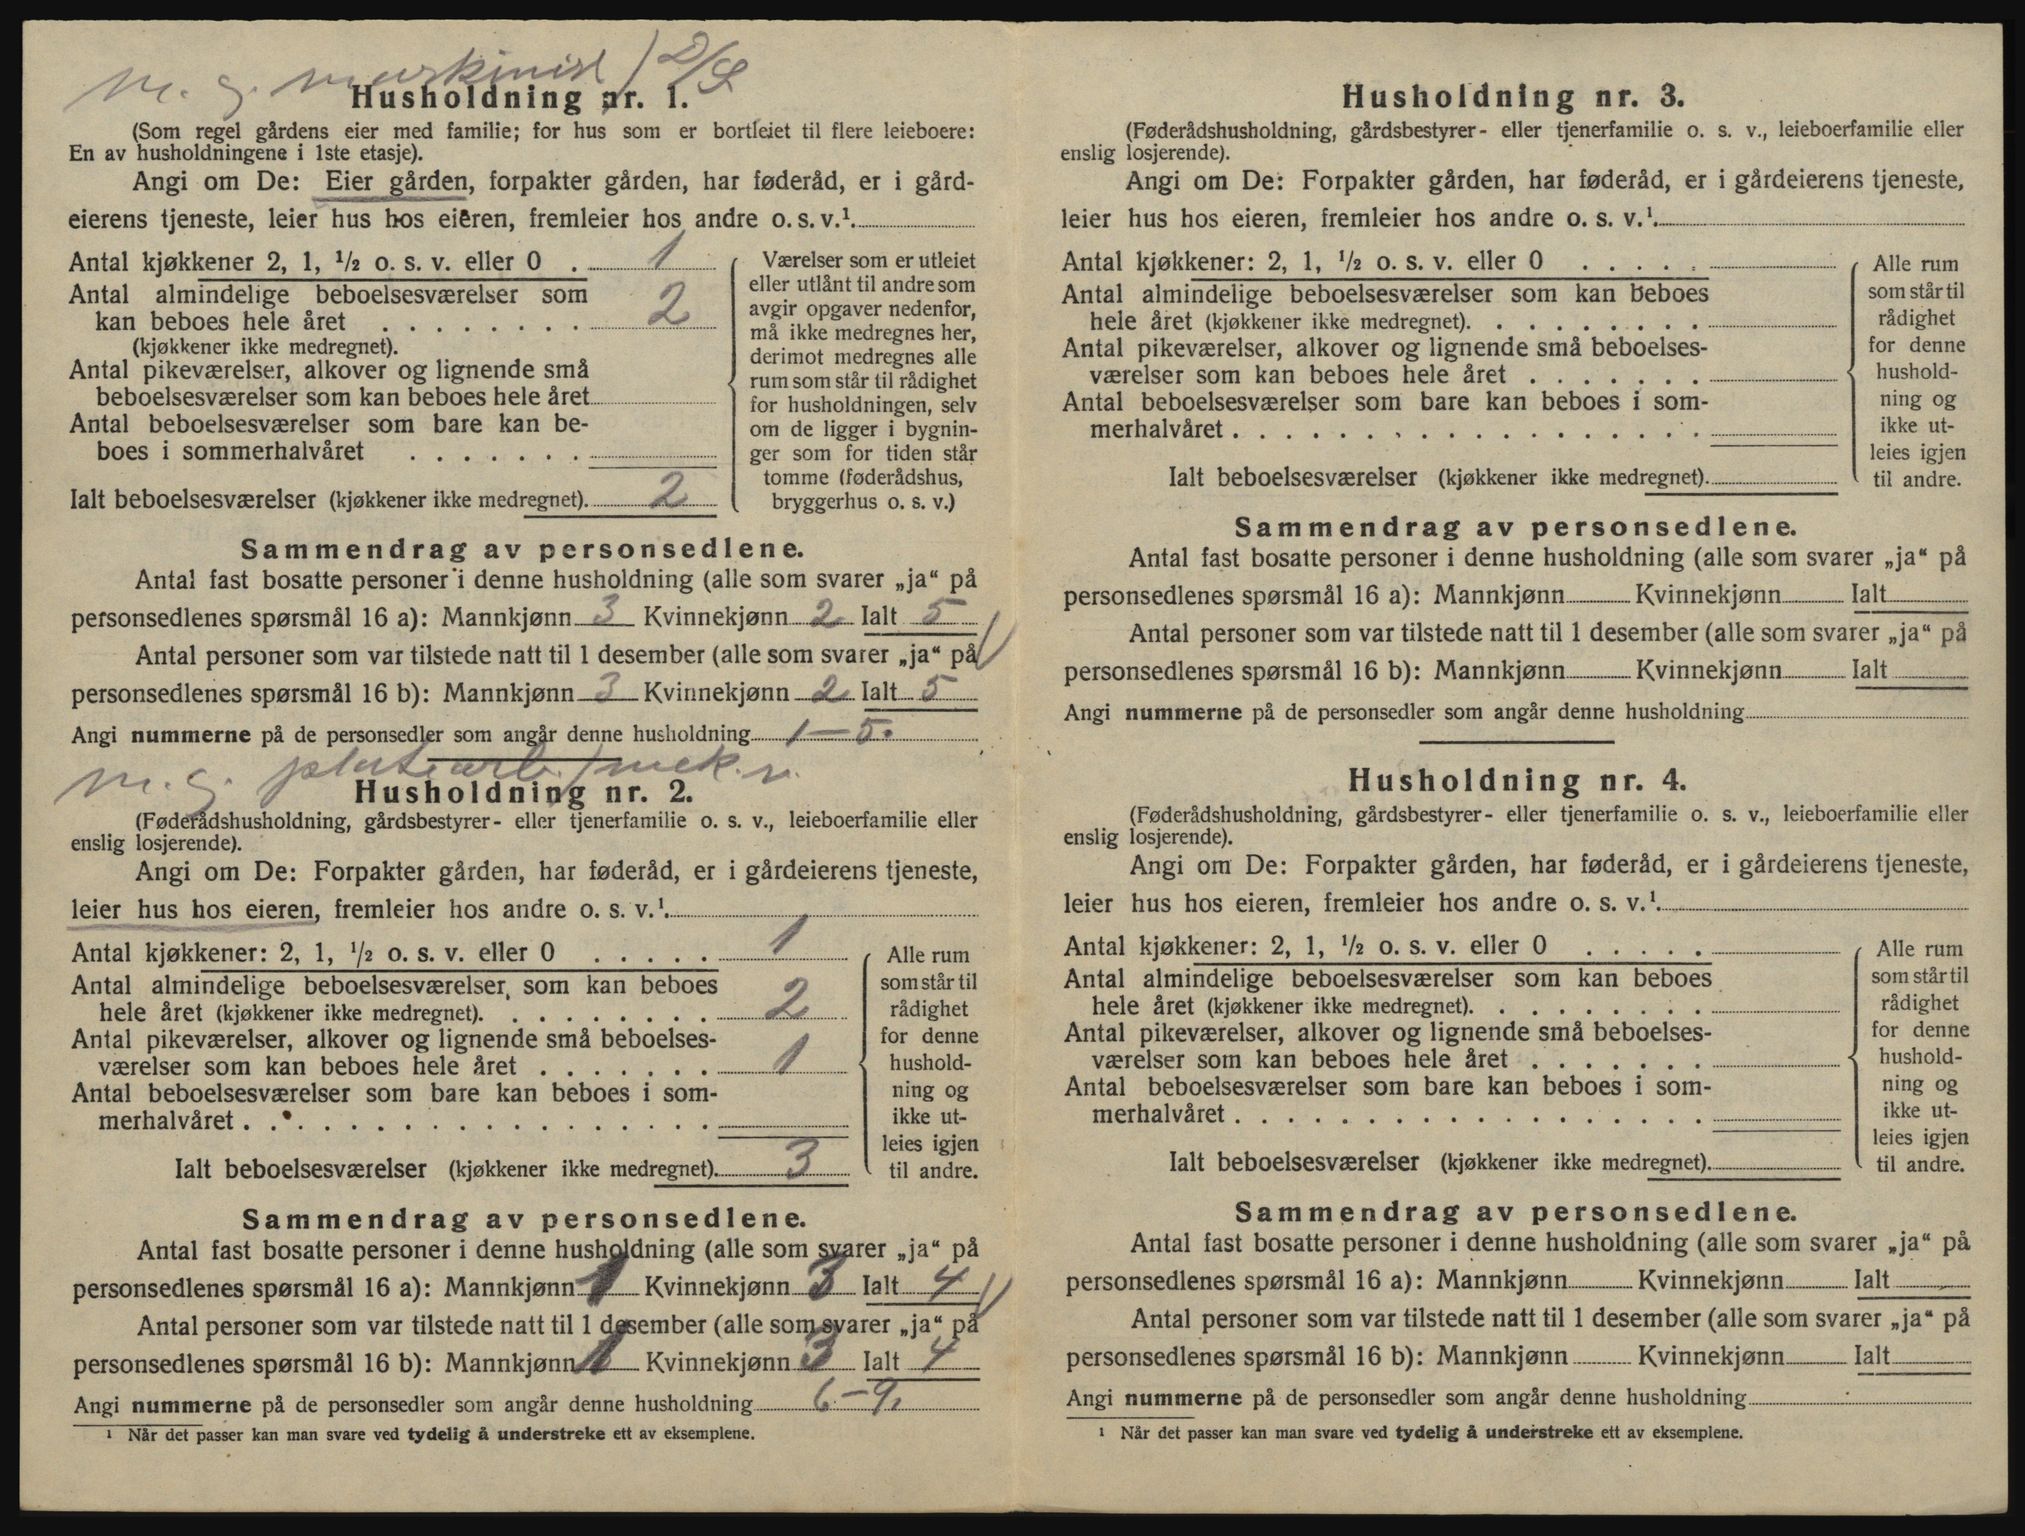 m. g. maskinist / D/S
Husholdning nr. 1.
(Som regel gårdens eier med familie; for hus som er bortleiet til flere leieboere:
En av husholdningene i 1ste etasje).
Angi om De: Eier gården, forpakter gården, har føderåd, er i gård-
eierens tjeneste, leier hus hos eieren, fremleier hos andre o. s. v.¹.
Antal kjøkkener 2, 1, ½ o. s. v. eller 0 . 1
Antal almindelige beboelsesværelser som
kan beboes hele året . . . . . . . . 2
(kjøkkener ikke medregnet).
Antal pikeværelser, alkover og lignende små
beboelsesværelser som kan beboes hele året
Antal beboelsesværelser som bare kan be-
boes i sommerhalvåret . . . . . . .
Ialt beboelsesværelser (kjøkkener ikke medregnet). 2
Værelser som er utleiet
eller utlånt til andre som
avgir opgaver nedenfor,
må ikke medregnes her,
derimot medregnes alle
rum som står til rådighet
for husholdningen, selv
om de ligger i bygnin-
ger som for tiden står
tomme (føderådshus,
bryggerhus o. s. v.)
Sammendrag av personsedlene.
Antal fast bosatte personer i denne husholdning (alle som svarer „ja“ på
personsedlenes spørsmål 16 a): Mannkjønn 3 Kvinnekjønn 2 Ialt 5
Antal personer som var tilstede natt til 1 desember (alle som svarer „ja“ på
personsedlenes spørsmål 16 b): Mannkjønn 3 Kvinnekjønn 2 Ialt 5
Angi nummerne på de personsedler som angår denne husholdning 1–5.
m. g. platearb. / mek. v.
Husholdning nr. 2.
(Føderådshusholdning, gårdsbestyrer- eller tjenerfamilie o. s. v., leieboerfamilie eller
enslig losjerende).
Angi om De: Forpakter gården, har føderåd, er i gårdeierens tjeneste,
leier hus hos eieren, fremleier hos andre o. s. v.¹.
Antal kjøkkener: 2, 1, ½ o. s. v. eller 0 . . . . . 1
Antal almindelige beboelsesværelser som kan beboes
hele året (kjøkkener ikke medregnet). . . . . . . . . 2
Antal pikeværelser, alkover og lignende små beboelses-
værelser som kan beboes hele året . . . . . . . 1
Antal beboelsesværelser som bare kan beboes i som-
merhalvåret . . . . . . . . . . . . . . . . . .
Ialt beboelsesværelser (kjøkkener ikke medregnet). 3
Alle rum
som står til
rådighet
for denne
hushold-
ning og
ikke ut-
leies igjen
til andre.
Sammendrag av personsedlene.
Antal fast bosatte personer i denne husholdning (alle som svarer „ja“ på
personsedlenes spørsmål 16 a): Mannkjønn 1 Kvinnekjønn 3 Ialt 4
Antal personer som var tilstede natt til 1 desember (alle som svarer „ja“ på
personsedlenes spørsmål 16 b): Mannkjønn 1 Kvinnekjønn 3 Ialt 4
Angi nummerne på de personsedler som angår denne husholdning 6–9.
¹ Når det passer kan man svare ved tydelig å understreke ett av eksemplene.
Husholdning nr. 3.
(Føderådshusholdning, gårdsbestyrer- eller tjenerfamilie o. s. v., leieboerfamilie eller
enslig losjerende).
Angi om De: Forpakter gården, har føderåd, er i gårdeierens tjeneste,
leier hus hos eieren, fremleier hos andre o. s. v.¹.
Antal kjøkkener: 2, 1, ½ o. s. v. eller 0 . . . . .
Antal almindelige beboelsesværelser som kan beboes
hele året (kjøkkener ikke medregnet). . . . . . . . .
Antal pikeværelser, alkover og lignende små beboelses-
værelser som kan beboes hele året . . . . . . .
Antal beboelsesværelser som bare kan beboes i som-
merhalvåret . . . . . . . . . . . . . . . . . .
Ialt beboelsesværelser (kjøkkener ikke medregnet).
Alle rum
som står til
rådighet
for denne
hushold-
ning og
ikke ut-
leies igjen
til andre.
Sammendrag av personsedlene.
Antal fast bosatte personer i denne husholdning (alle som svarer „ja“ på
personsedlenes spørsmål 16 a): Mannkjønn Kvinnekjønn Ialt
Antal personer som var tilstede natt til 1 desember (alle som svarer „ja“ på
personsedlenes spørsmål 16 b): Mannkjønn Kvinnekjønn Ialt
Angi nummerne på de personsedler som angår denne husholdning
Husholdning nr. 4.
(Føderådshusholdning, gårdsbestyrer- eller tjenerfamilie o. s. v., leieboerfamilie eller
enslig losjerende).
Angi om De: Forpakter gården, har føderåd, er i gårdeierens tjeneste,
leier hus hos eieren, fremleier hos andre o. s. v.¹.
Antal kjøkkener: 2, 1, ½ o. s. v. eller 0 . . . . .
Antal almindelige beboelsesværelser som kan beboes
hele året (kjøkkener ikke medregnet). . . . . . . . .
Antal pikeværelser, alkover og lignende små beboelses-
værelser som kan beboes hele året . . . . . . .
Antal beboelsesværelser som bare kan beboes i som-
merhalvåret . . . . . . . . . . . . . . . . . .
Ialt beboelsesværelser (kjøkkener ikke medregnet).
Alle rum
som står til
rådighet
for denne
hushold-
ning og
ikke ut-
leies igjen
til andre.
Sammendrag av personsedlene.
Antal fast bosatte personer i denne husholdning (alle som svarer „ja“ på
personsedlenes spørsmål 16 a): Mannkjønn Kvinnekjønn Ialt
Antal personer som var tilstede natt til 1 desember (alle som svarer „ja“ på
personsedlenes spørsmål 16 b): Mannkjønn Kvinnekjønn Ialt
Angi nummerne på de personsedler som angår denne husholdning
¹ Når det passer kan man svare ved tydelig å understreke ett av eksemplene.